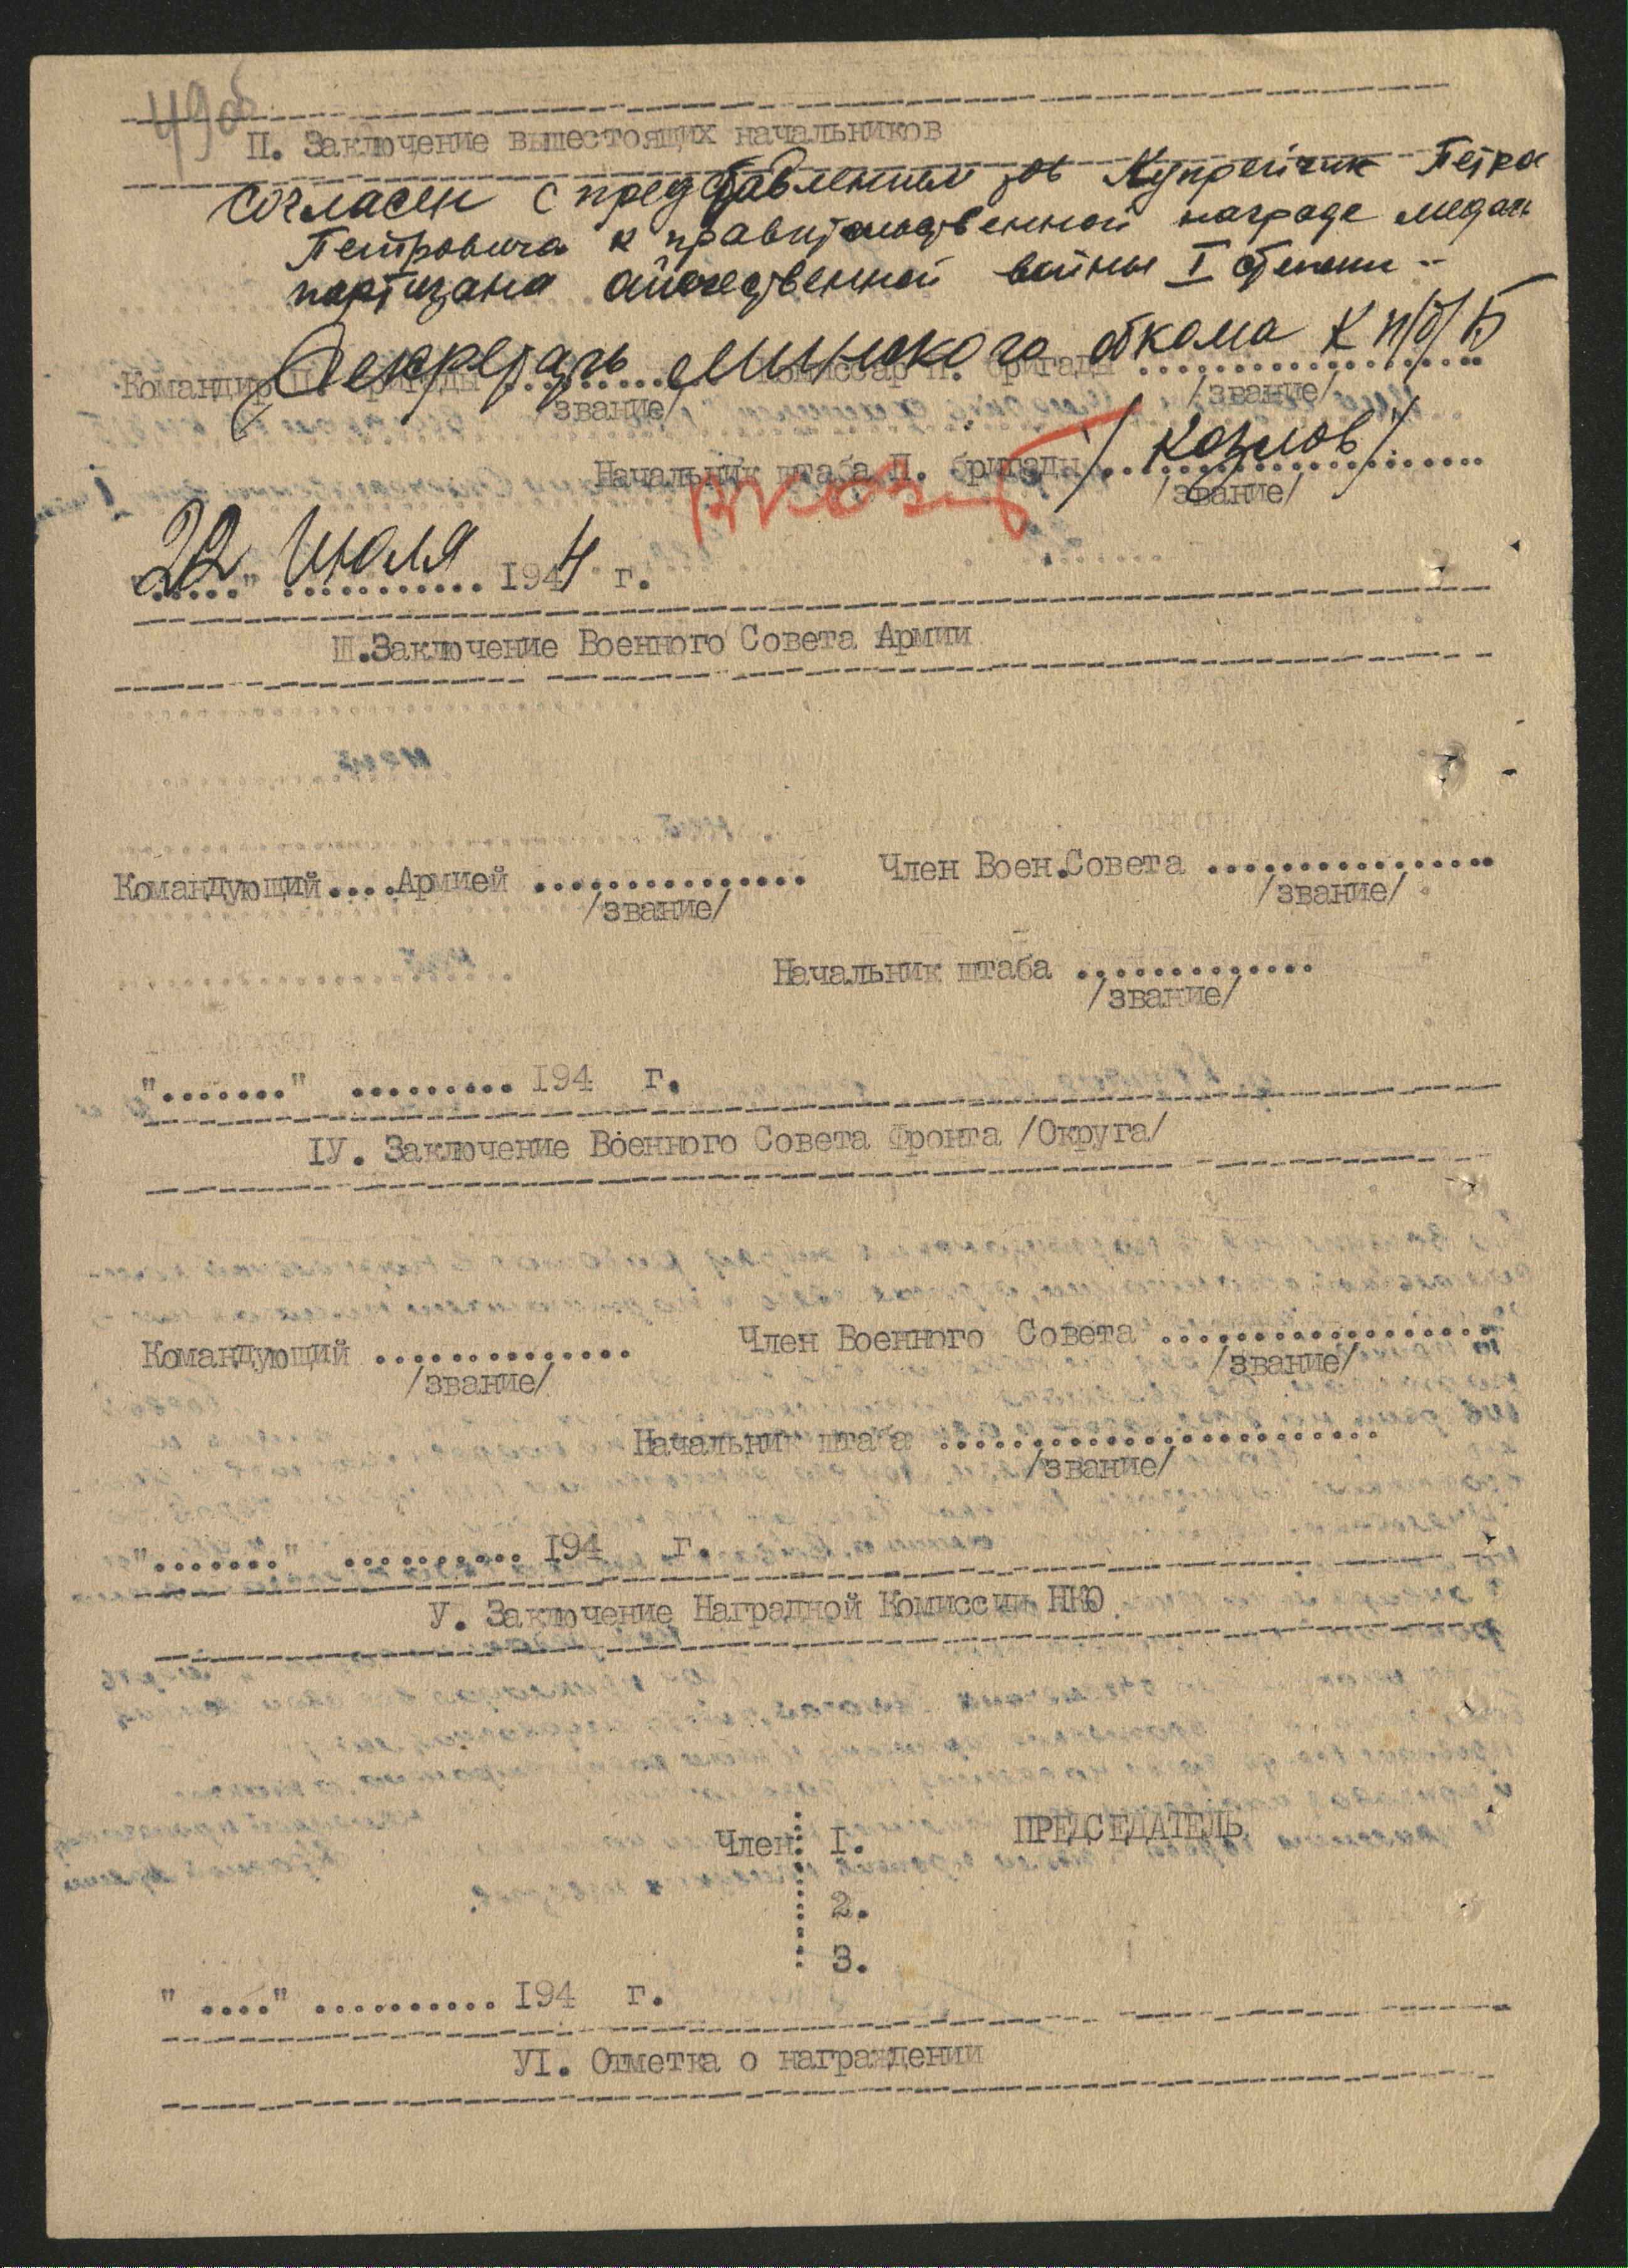 49об
II. Заключение вышестоящих начальников
Согласен с представлением тов Купрейчик Петра
Петровича к правительственной награде медаль
партизана отечественной войны I степени
Секретарь Минского обкома КП(б)Б
Командир П. бригады .......... Комиссар П. бригады ..................
/звание/ /звание/
/Козлов/
Начальник штаба П. бригады .....................
/звание/
22 " Июля 1944 г.
III.Заключение Военного Совета Армии
Командующий....Армией ............... Член Воен.Совета ................
/звание/ /звание/
Начальник штаба .............
/звание/
"......." ......... 194 г.
IУ. Заключение Военного Совета Фронта /Округа/
Командующий .............. Член Военного Совета ..................
/звание/ /звание/
Начальник штаба ........................
/звание/
"......." .......... 194 г.
У. Заключение Наградной Комиссии НКО
ПРЕДСЕДАТЕЛЬ
Член: I.
2.
3.
" ...." .......... 194 г.
УI. Отметка о награждении